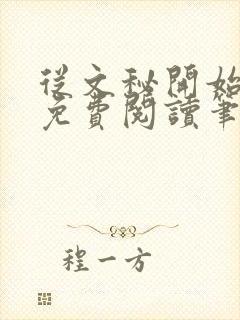 從文秘開始
免費閱讀筆
程一方